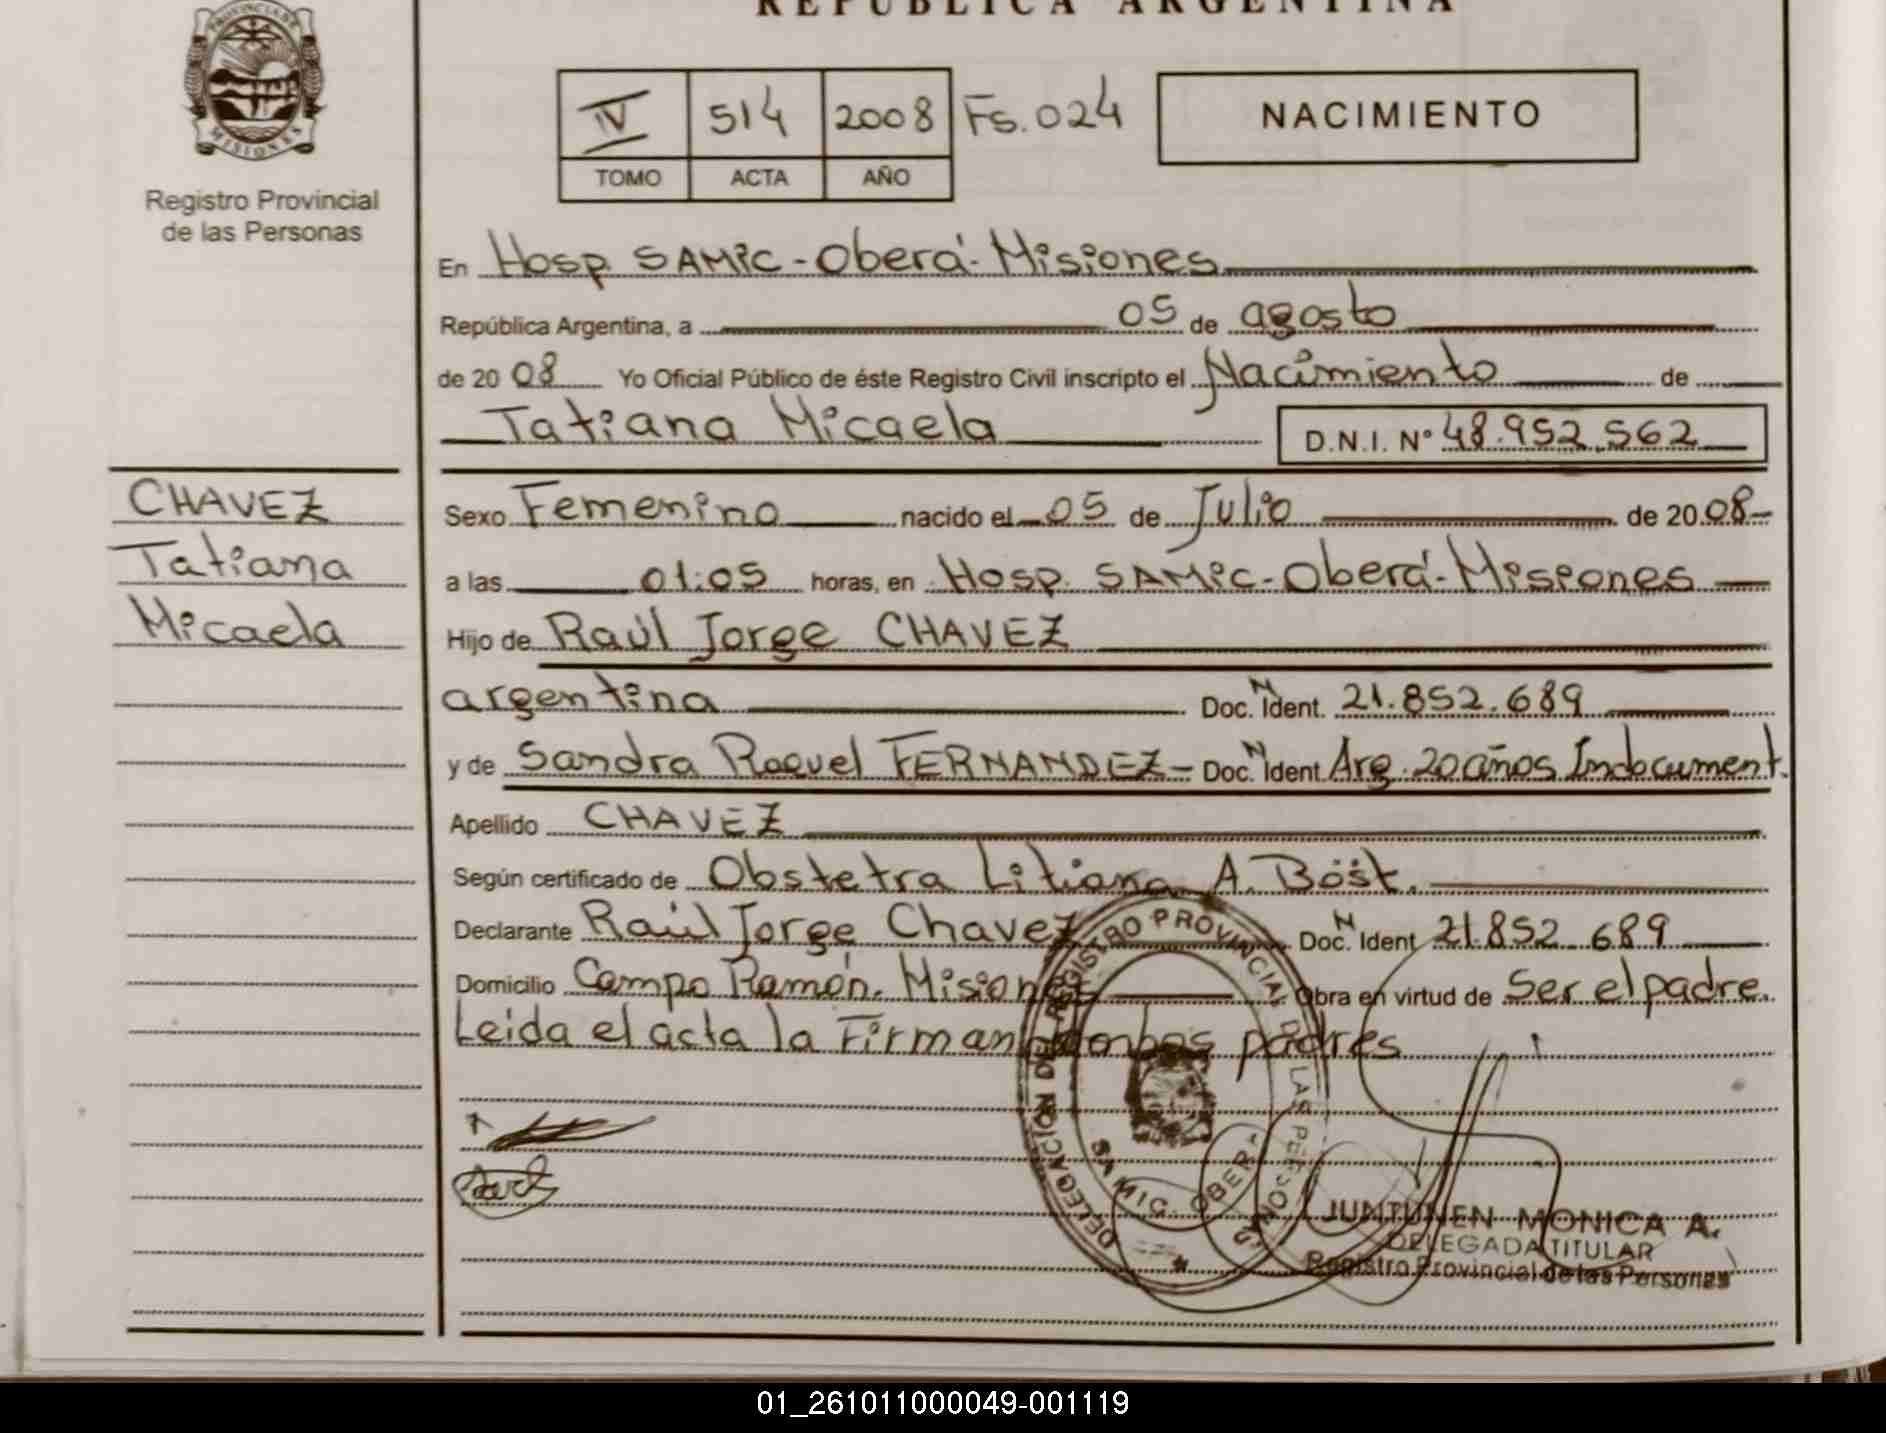 REPUBLICA ARGENTINA
PROVINCIA DE
MISIONES
Registro Provincial
de las Personas
IV 514 2008 Fs. 024
TOMO ACTA AÑO
NACIMIENTO
En Hosp. SAMIC - Oberá - Misiones
República Argentina, a 05 de agosto
de 20 08 Yo Oficial Público de éste Registro Civil inscripto el Nacimiento de
Tatiana Micaela D.N.I. N° 48.952.562
CHAVEZ
Tatiana
Micaela
Sexo Femenino nacido el 05 de Julio de 20 08
a las 01:05 horas, en Hosp. SAMIC - Oberá - Misiones
Hijo de Raúl Jorge CHAVEZ
argentina Doc. N Ident. 21.852.689
y de Sandra Raquel FERNANDEZ - Doc. N Ident Arg. 20 años Indocument.
Apellido CHAVEZ
Según certificado de Obstetra Liliana A. Böst.
Declarante Raúl Jorge Chavez Doc. N Ident 21.852.689
Domicilio Campo Ramón. Misiones Obra en virtud de Ser el padre.
Leida el acta la Firman ambos padres
DELEGACION DEL REGISTRO PROVINCIAL DE LAS PERSONAS
SAMIC. OBERA
JUNTUNEN MONICA A.
DELEGADA TITULAR
Registro Provincial de las Personas
01_261011000049-001119